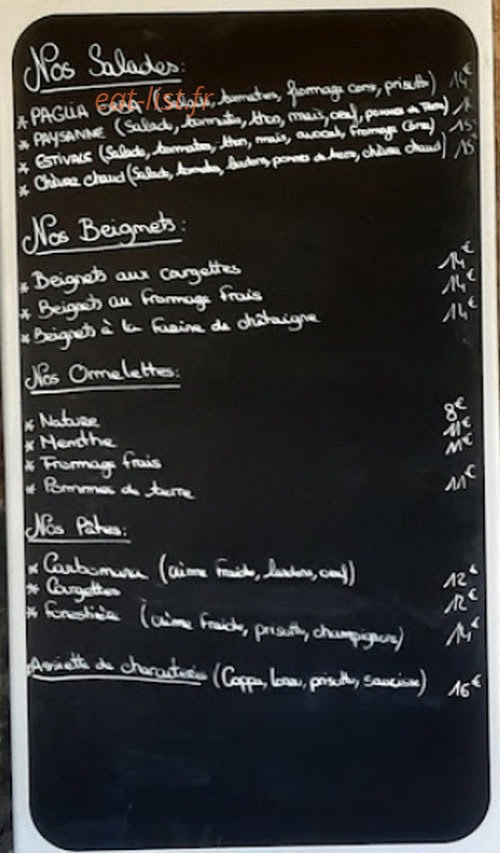 Nos Salades:
eat-list.fr
* PAGLIA ORBA (Salade, tomates, fromage corse, prisuttu) 14€
* PAYSANNE (Salade, tomates, thon, maïs, oeuf, pommes de Terre)
* ESTIVALE (Salade, tomates, thon, maïs, avocat, fromage Corse) 15€
* Chèvre chaud (Salade, tomates, lardons, pommes de terre, chèvre chaud) 15€
Nos Beignets:
* Beignets aux courgettes 14€
* Beignets au fromage frais 14€
* Beignets à la farine de châtaigne 14€
Nos Omelettes:
* Nature 8€
* Menthe 11€
* Fromage frais 11€
* Pommes de terre 11€
Nos Pâtes:
* Carbonara (Crème fraîche, lardons, oeuf) 12€
* Courgettes 12€
* Forestière (Crème fraîche, prisuttu, champignons) 14€
Assiette de charcuterie (Coppa, lonzu, prisuttu, saucisson) 16€